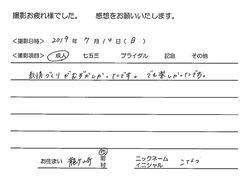 撮影お疲れ様でした。 感想をお願いいたします。
<撮影日時> 2019 年 7 月 14 日 (日)
<撮影項目> 成人 七五三 ブライダル 記念 その他
表情づくりがむずかしかったです。でも楽しかったです。
お住まい 市 町 村 ニックネーム イニシャル